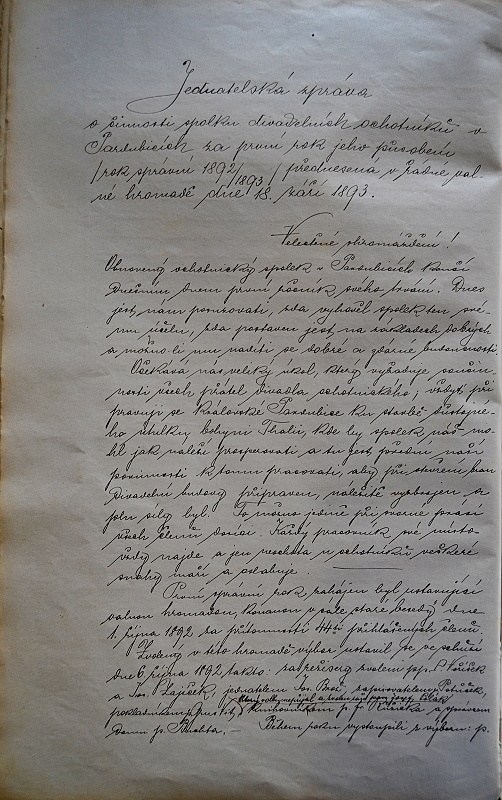 Jednatelská zpráva
o činnosti spolku divadelních ochotníků v
Pardubicích za první rok jeho působení
/rok správní 1892/1893/ přednesena v řádné val-
né hromadě dne 18. září 1893.
Velectěné shromáždění!
Obnovený ochotnický spolek v Pardubicích končí
dnešním dnem první ročník svého trvání. Dnes
jest nám poukázati, zda vyhověl spolek ten své-
mu účelu, zda postaven jest na základech dobrých
a možno-li mu nadíti se dobré a zdárné budoucnosti
Očekává nás veliký úkol, který vyžaduje součin-
nosti všech přátel divadla ochotnického; vždyť při
pravují se Královské Pardubice ku stavbě důstojné-
ho útulku bohyni Thalii, kde by spolek náš mo-
hl jak náleží prosperovati a tu jest přední naší
povinností k tomu pracovati, aby při otevření
divadelní budovy připraven, náležitě vyzbrojen a
pln síly byl. To možno jedině při svorné práci
všech členů docíliti. Každý pracovník své místo
vždy najde a jen nechuta u ochotníků veškeré
snahy maří a oslabuje.
První správní rok zahájen byl ustavující
valnou hromadou, konanou v sále staré besedy dne
1. října 1892 za přítomnosti 44ti přihlášených členů.
Zvolený v této hromadě výbor ustavil se ve schůzi
dne 6 října 1892 takto: za režiséry zvoleni pp.
a Jos. Lajíček, jednatelem Jos. Brož zapisovatelem Potůček,
pokladníkem p. knihovníkem p. Fr. Růžička a správcem
domu p. Buchta. — Během roku vystoupili z výboru: p.